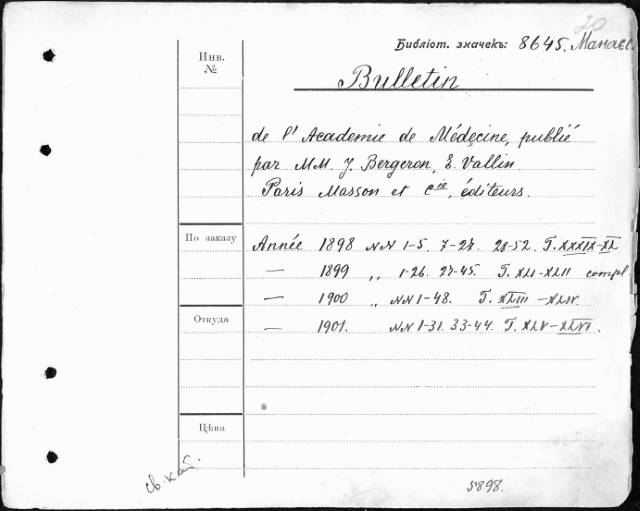 Библіот. значекъ: 8645.
Инв.
№
Bulletin
de l'Academie de Médecine, publié
par MM. J. Bergeron, E. Vallin.
Paris Masson et Cie, éditeurs.
По заказу
Année 1898 NN 1-5. 7-27. 28-52. T. XXXIX-XL
— 1899 „ 1-26. 27-45. T. XLI-XLII compl
— 1900 „ NN 1-48. T. XLIII-XLIV.
Откуда
— 1901. NN 1-31. 33-44. T. XLV-XLVI.
Цѣна
св. кат.
5898.